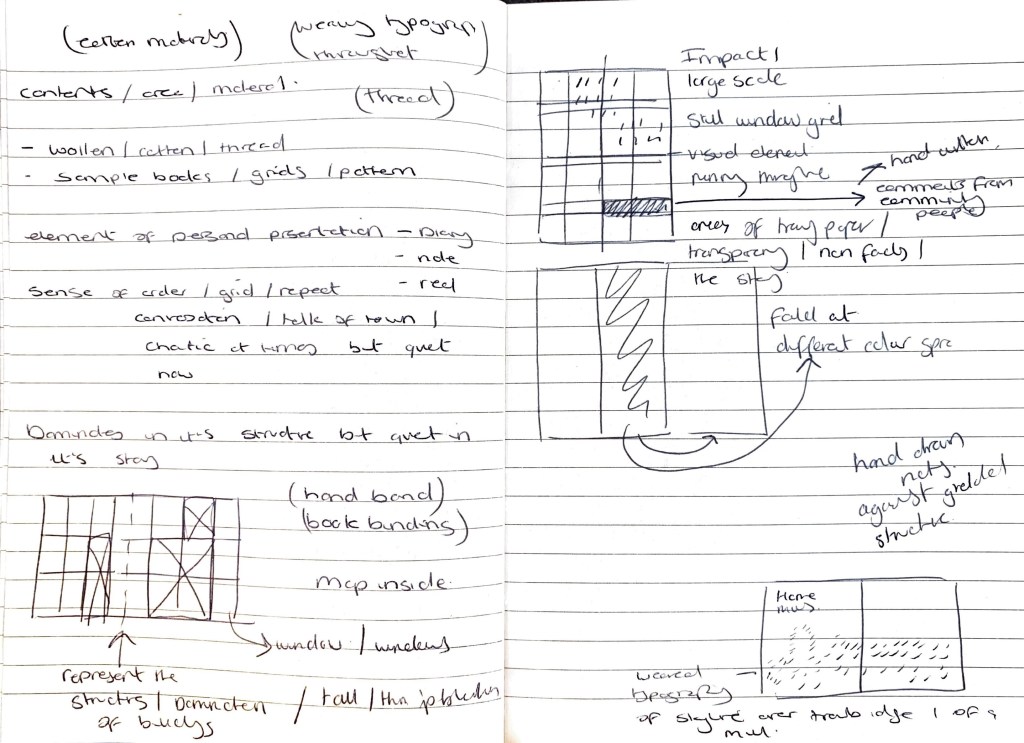 (cotton materials)
(weaving typography
throughout
contents / area / material.
(thread)
- wollen / cotton / thread
- sample books / grids / pattern
element of personal presentation - Diary
- note
- reel
sense of order / grid / repeat
conversation / talk of town /
chaotic at times but quiet
now
Dominates in it's structure but quiet in
it's story
(hand bond)
(book binding)
map inside.
window / windows
represent the
structures / Domination
of buildings
/ tall / thin
Impact /
large scale
still window grid
visual element
running
hand written
comments from
community
people
areas of tracing paper /
transparency / non facts /
the story
fold at
different colour
hand drawn
notes.
against gridded
structure
Home
mills
weaved
typography
of over / of a
mill.